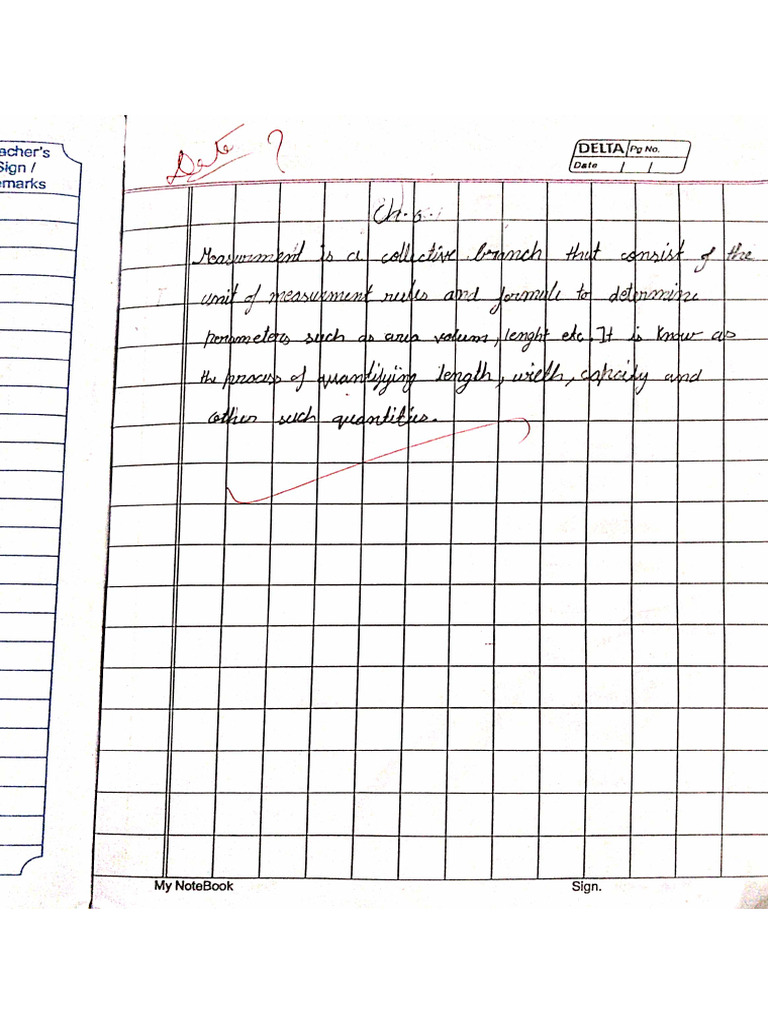 acher's
Sign /
emarks
Date ?
DELTA Pg No.
Date / /
Ch-5
Measurment is a collective branch that consist of the
unit of measurment rules and formule to determine
perameters such as area volum, lenght etc. It is know as
the process of quantifying length, width, capcity and
other such quantities.
My NoteBook
Sign.